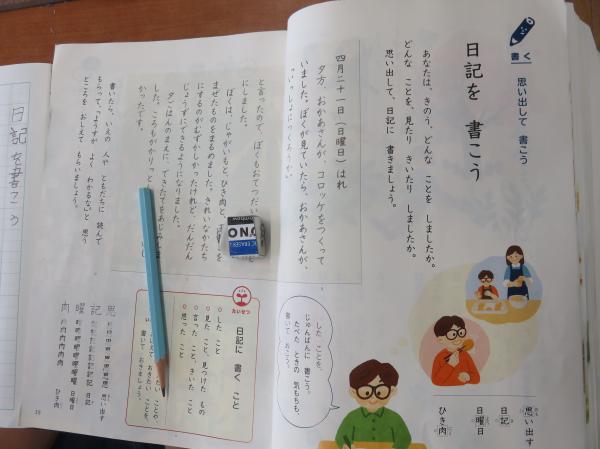 書く
思い出して 書こう
日記を 書こう
あなたは、きのう、どんな ことを しましたか。
どんな ことを、見たり きいたり しましたか。
思い出して、日記に 書きましょう。
四月二十一日（日曜日）はれ
夕方、おかあさんが、コロッケをつくって
いました。ぼくが見ていたら、おかあさんが、
「いっしょにつくろうか。」
した ことを、
じゅんばんに 書こう。
たべた ときの 気もちも、
書いて おこう。
思い出す
日記
日曜日
ひき肉
と言ったので、ぼくもおてつだい
にしました。
ぼくは、じゃがいもと、ひき肉と
まぜたものをまるめました。きれいなかたち
にするのがむずかしかったけれど、だんだん
じょうずにできるようになりました。
夕ごはんのまえに、できたてをあじみ
した。ころもがかりっと
かったです。
書いたら、いえの 人や ともだちに 読んで
もらって、「ようすが よく わかるな。」と 思う
ところを おしえて もらいましょう。
たいせつ
日記に 書く こと
した こと
見た こと、見つけた もの
言った こと、きいた こと
思った こと
書いて、おきましょう。
思 思い出す
記 日記
曜 日曜日
肉 ひき肉
日記を書こう